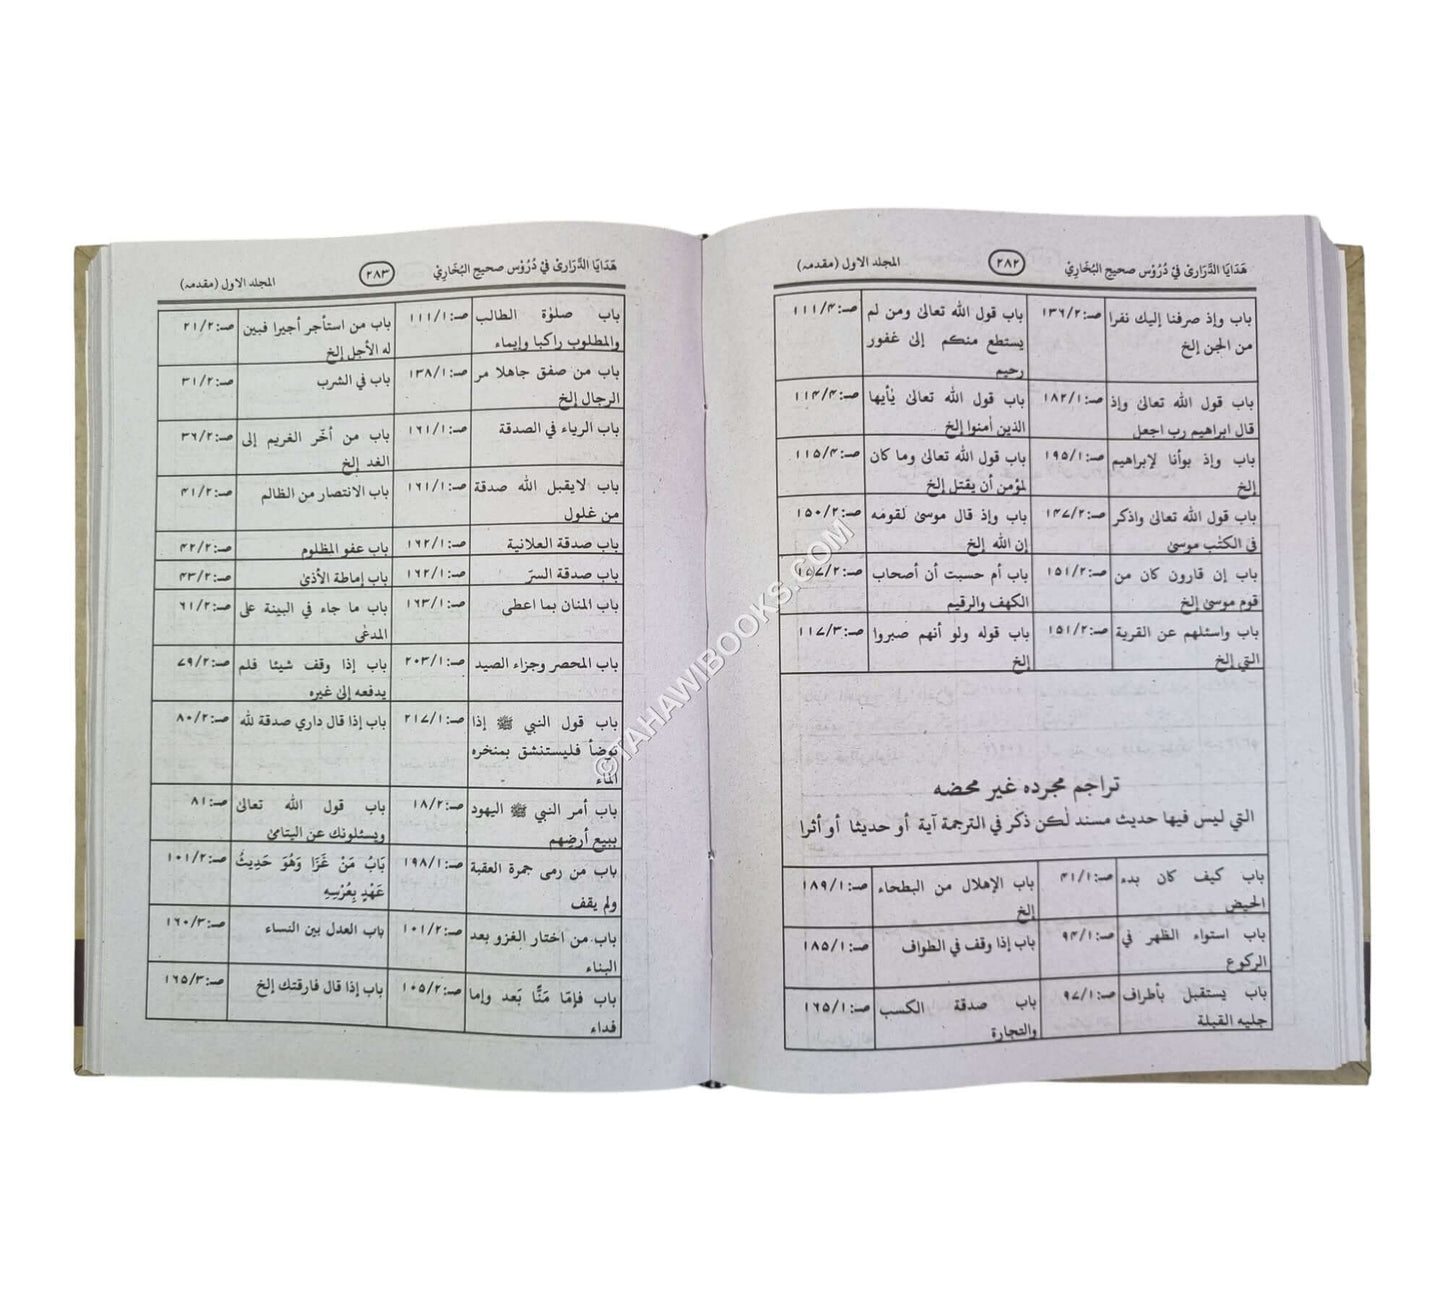 هَدَايَا الدَّرَارِىْ فِيْ دُرُوْس صحيح البُخَارِيْ ٢٨٢ المجلد الاول (مقدمہ)
باب وإذ صرفنا إليك نفرا صـ:١٣٦/٢
من الجن إلخ
باب قول الله تعالىٰ وإذ صـ:١٨٢/١
قال ابراهيم رب اجعل
باب وإذ بوأنا لإبراهيم صـ:١٩٥/١
إلخ
باب قول الله تعالىٰ واذكر صـ:١۴٧/٢
في الكتٰب موسىٰ
باب إن قارون كان من صـ:١٥١/٢
قوم موسىٰ إلخ
باب واسئلهم عن القرية صـ:١٥١/٢
التي إلخ
باب قول الله تعالىٰ ومن لم صـ:١١١/۴
يستطع منكم إلىٰ غفور
رحيم
باب قول الله تعالىٰ يٰأيها صـ:١١۴/۴
الذين اٰمنوا إلخ
باب قول الله تعالىٰ وما كان صـ:١١٥/۴
لمؤمن أن يقتل إلخ
باب وإذ قال موسىٰ لقومه صـ:١٥٠/٢
إن الله إلخ
باب أم حسبت أن أصحاب صـ:١٥٧/٢
الكهف والرقيم
باب قوله ولو أنهم صبروا صـ:١١٧/٣
إلخ
تراجم مجرده غير محضه
التي ليس فيها حديث مسند لٰكن ذكر في الترجمة آية أو حديثا أو أثرا
باب كيف كان بدء صـ:۴١/١
الحيض
باب استواء الظهر في صـ:٩۴/١
الركوع
باب يستقبل بأطراف صـ:٩٧/١
جليه القبلة
باب الإهلال من البطحاء صـ:١٨٩/١
إلخ
باب إذا وقف في الطواف صـ:١٨٥/١
باب صدقة الكسب صـ:١٦٥/١
والتجارة
هَدَايَا الدَّرَارِىْ فِيْ دُرُوْس صحيح البُخَارِيْ ٢٨٣ المجلد الاول (مقدمہ)
باب صلوٰة الطالب صـ:١١١/١
والمطلوب راكبا وإيماء
باب من صفق جاهلا مر صـ:١٣٨/١
الرجال إلخ
باب الرياء في الصدقة صـ:١٦١/١
باب لايقبل الله صدقة صـ:١٦١/١
من غلول
باب صدقة العلانية صـ:١٦٢/١
باب صدقة السرّ صـ:١٦٢/١
باب المنان بما اعطى صـ:١٦٣/١
باب المحصر وجزاء الصيد صـ:٢٠٣/١
باب قول النبي ﷺ إذا صـ:٢١٧/١
توضأ فليستنشق بمنخره
الماء
باب أمر النبي ﷺ اليهود صـ:١٨/٢
ببيع أرضهم
باب من رمى جمرة العقبة صـ:١٩٨/١
ولم يقف
باب من اختار الغزو بعد صـ:١٠١/٢
البناء
باب فإمّا مَنًّا بَعد وإما صـ:١٠٥/٢
فداء
باب من استأجر أجيرا فبين صـ:٢١/٢
له الأجل إلخ
باب في الشرب صـ:٣١/٢
باب من أخّر الغريم إلى صـ:٣٦/٢
الغد إلخ
باب الانتصار من الظالم صـ:۴١/٢
باب عفو المظلوم صـ:۴٢/٢
باب إماطة الأذىٰ صـ:۴٣/٢
باب ما جاء في البينة على صـ:٦١/٢
المدعٰى
باب إذا وقف شيئا فلم صـ:٧٩/٢
يدفعه إلىٰ غيره
باب إذا قال داري صدقة لله صـ:٨٠/٢
باب قول الله تعالىٰ صـ:٨١
ويسئلونك عن اليتامىٰ
بَابُ مَنْ غَزَا وَهُوَ حَدِيثُ صـ:١٠١/٢
عَهْدٍ بِعُرْسِهِ
باب العدل بين النساء صـ:١٦٠/٣
باب إذا قال فارقتك إلخ صـ:١٦٥/٣
©TAHAWIBOOKS.COM